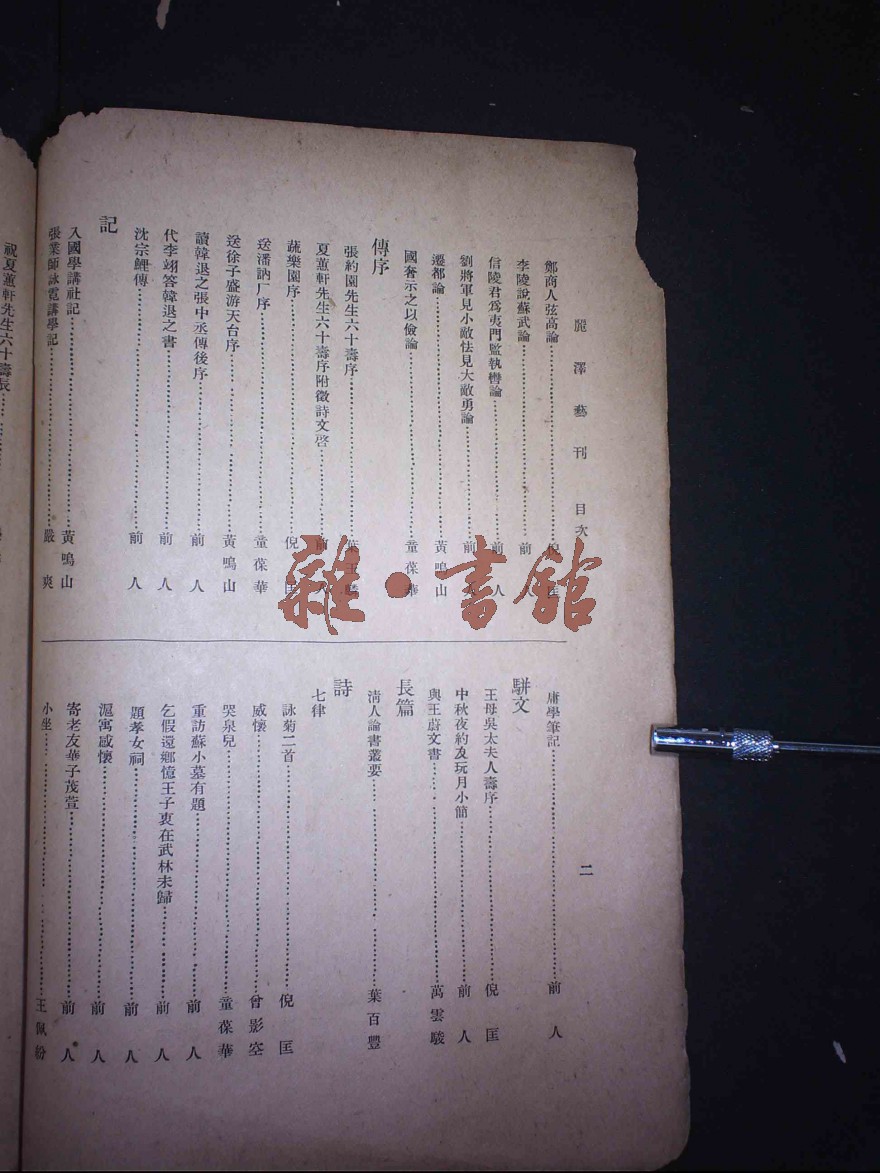 麗澤藝刊 目次
二
鄭商人弦高論 倪匡
李陵說蘇武論 前人
信陵君爲夷門監執轡論 前人
劉將軍見小敵怯見大敵勇論 前人
遷都論 黃鳴山
國奢示之以儉論 童葆華
傳序
張約園先生六十壽序 葉玉麟
夏蕙軒先生六十壽序附徵詩文啓 前人
蔬樂園序 倪匡
送潘訥厂序 童葆華
送徐子盛游天台序 黃鳴山
讀韓退之張中丞傳後序 前人
代李翊答韓退之書 前人
沈宗鯉傳 前人
記
入國學講社記 黃鳴山
張業師詠霓講學記 嚴爽
祝夏蕙軒先生六十壽辰
庸學筆記 前人
駢文
王母吳太夫人壽序 倪匡
中秋夜約友玩月小簡 前人
與王蔚文書 萬雲駿
長篇
清人論書叢要 葉百豐
詩
七律
詠菊二首 倪匡
感懷 曾影空
哭泉兒 童葆華
重訪蘇小墓有題 前人
乞假還鄉憶王子衷在武林未歸 前人
題孝女祠 前人
滬寓感懷 前人
寄老友華子茂萱 前人
小坐 王佩紛
雜·書館